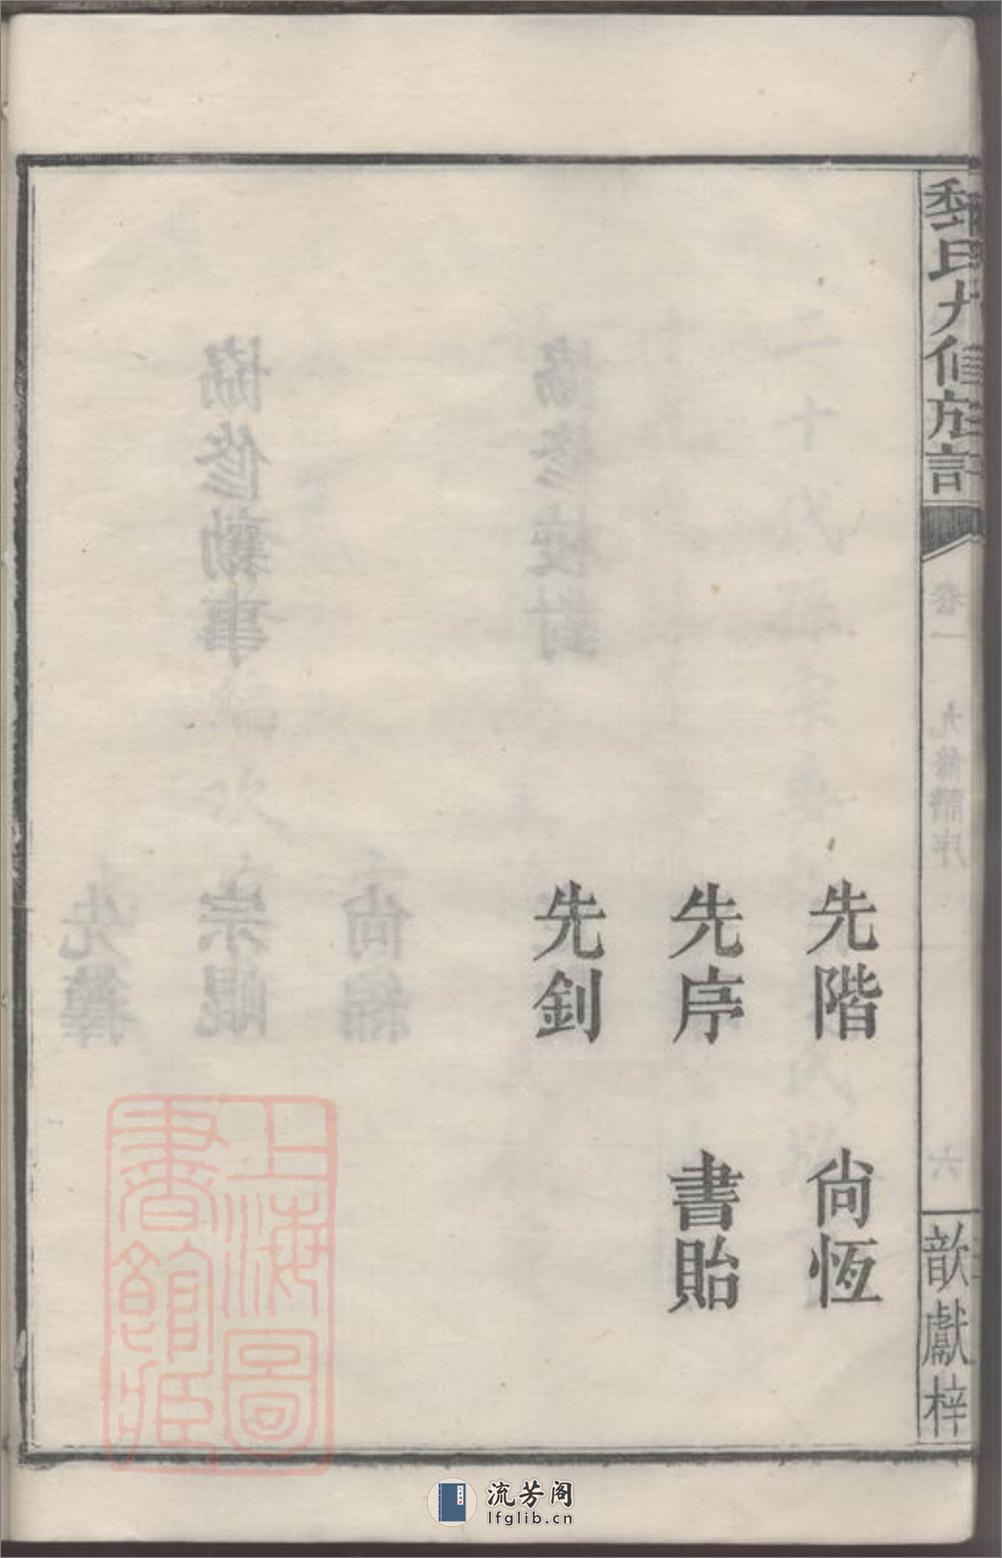 先階 尙恆
先序 書貽
先釗
氏九修族譜
卷一 九修譜序
六
歆獻梓
上海圖書館藏
流芳阁
lfglib.cn